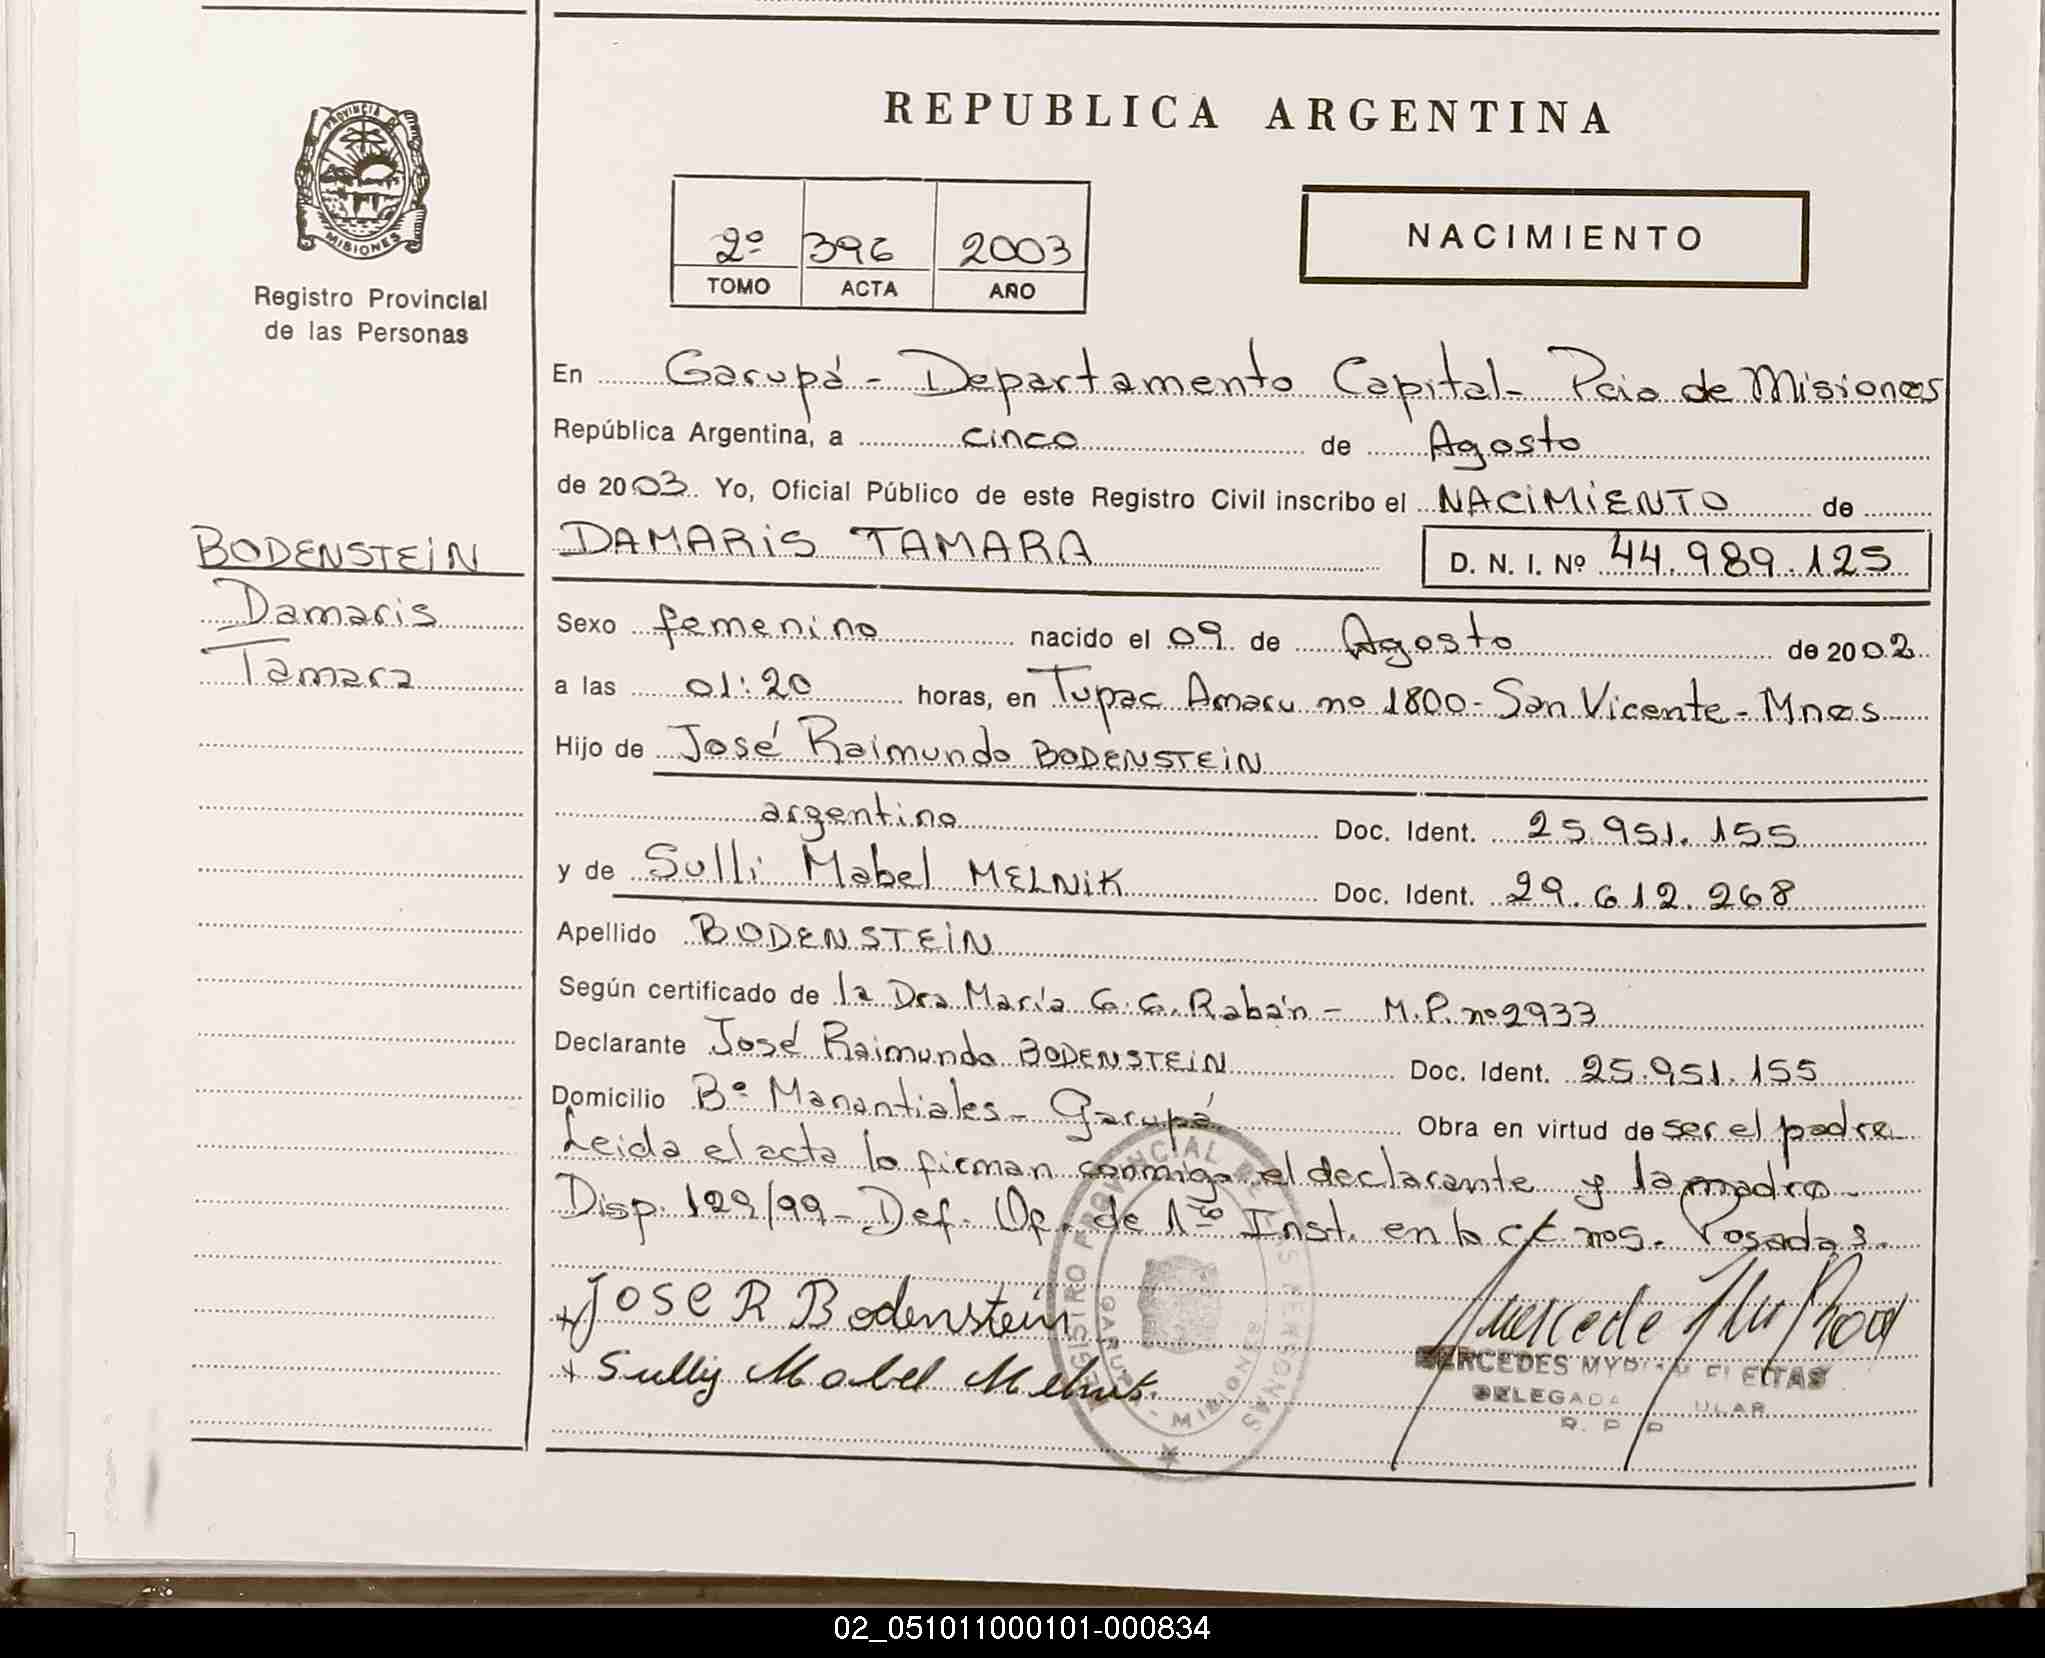 REPUBLICA ARGENTINA
PROVINCIA DE
MISIONES
Registro Provincial
de las Personas
2º 396 2003
TOMO ACTA AÑO
NACIMIENTO
En Garupá - Departamento Capital - Pcia de Misiones
República Argentina, a cinco de Agosto
de 2003. Yo, Oficial Público de este Registro Civil inscribo el NACIMIENTO de
BODENSTEIN
Damaris
Tamara
DAMARIS TAMARA D. N. I. Nº 44.989.125
Sexo femenino nacido el 09 de Agosto de 2002
a las 01:20 horas, en Tupac Amaru nº 1800 - San Vicente - Mnes
Hijo de José Raimundo BODENSTEIN
argentino Doc. Ident. 25.951.155
y de Sulli Mabel MELNIK Doc. Ident. 29.612.268
Apellido BODENSTEIN
Según certificado de la Dra María G. G. Rabán - M.P. nº 2933
Declarante José Raimundo BODENSTEIN Doc. Ident. 25.951.155
Domicilio Bº Manantiales - Garupá Obra en virtud de ser el padre
Leida el acta lo firman conmigo el declarante y la madre
Disp. 129/99 - Def. Of. de 1ra Inst. en lo C.C. nº 5. Posadas.
+ Jose R Bodenstein
+ Sully Mabel Melnik.
REGISTRO PROVINCIAL DE LAS PERSONAS
GARUPA - MISIONES
MERCEDES FLEITAS
DELEGADA
R. P. P.
02_051011000101-000834